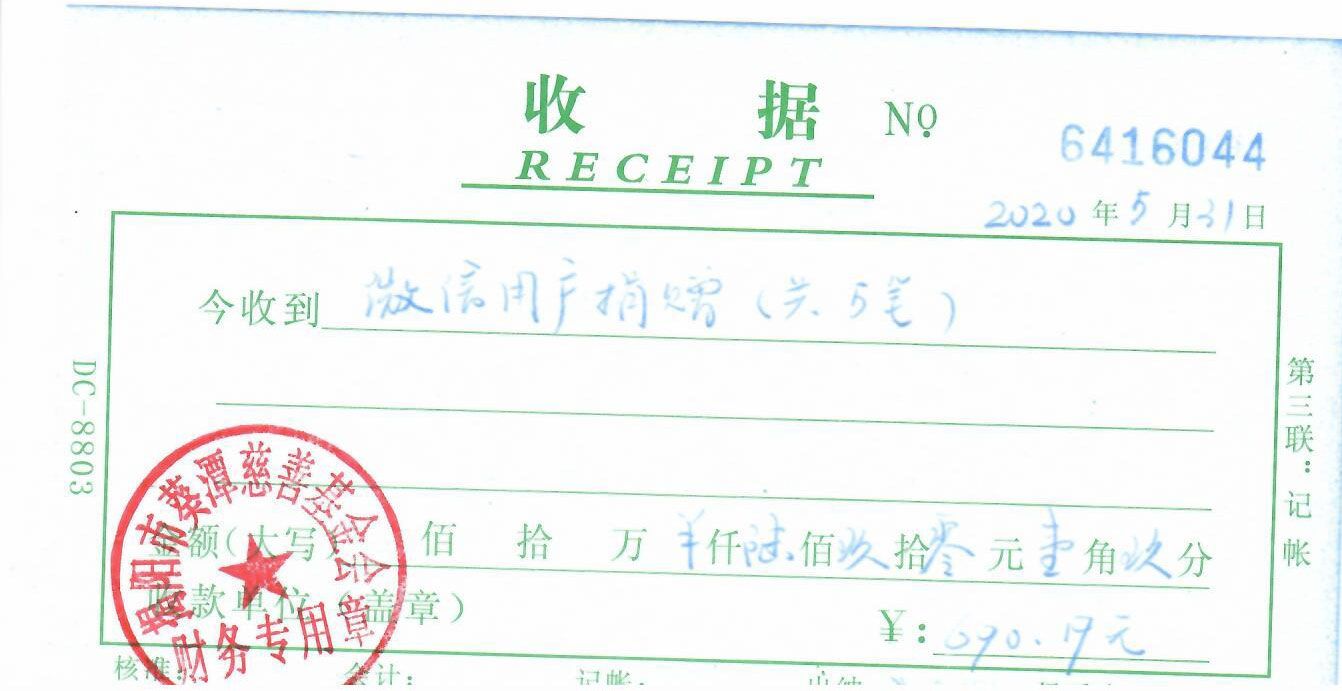 收 据 №
6416044
RECEIPT
2020 年 5 月 31 日
今收到 微信用户捐赠（共5笔）
金额(大写) 佰 拾 万 ¥仟陆佰玖拾零元壹角玖分
收款单位（盖章）
¥: 690.19元
核准: 会计: 记帐: 出纳
DC-8803
第三联：记帐
揭阳市葵潭慈善基金会
财务专用章